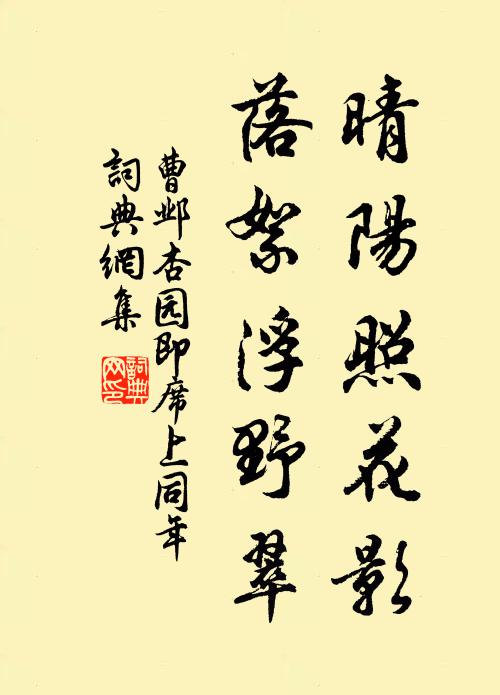 晴陽照花影
落絮浮野翠
曹邺杏园即席上同年
詞典網集
詞典网印